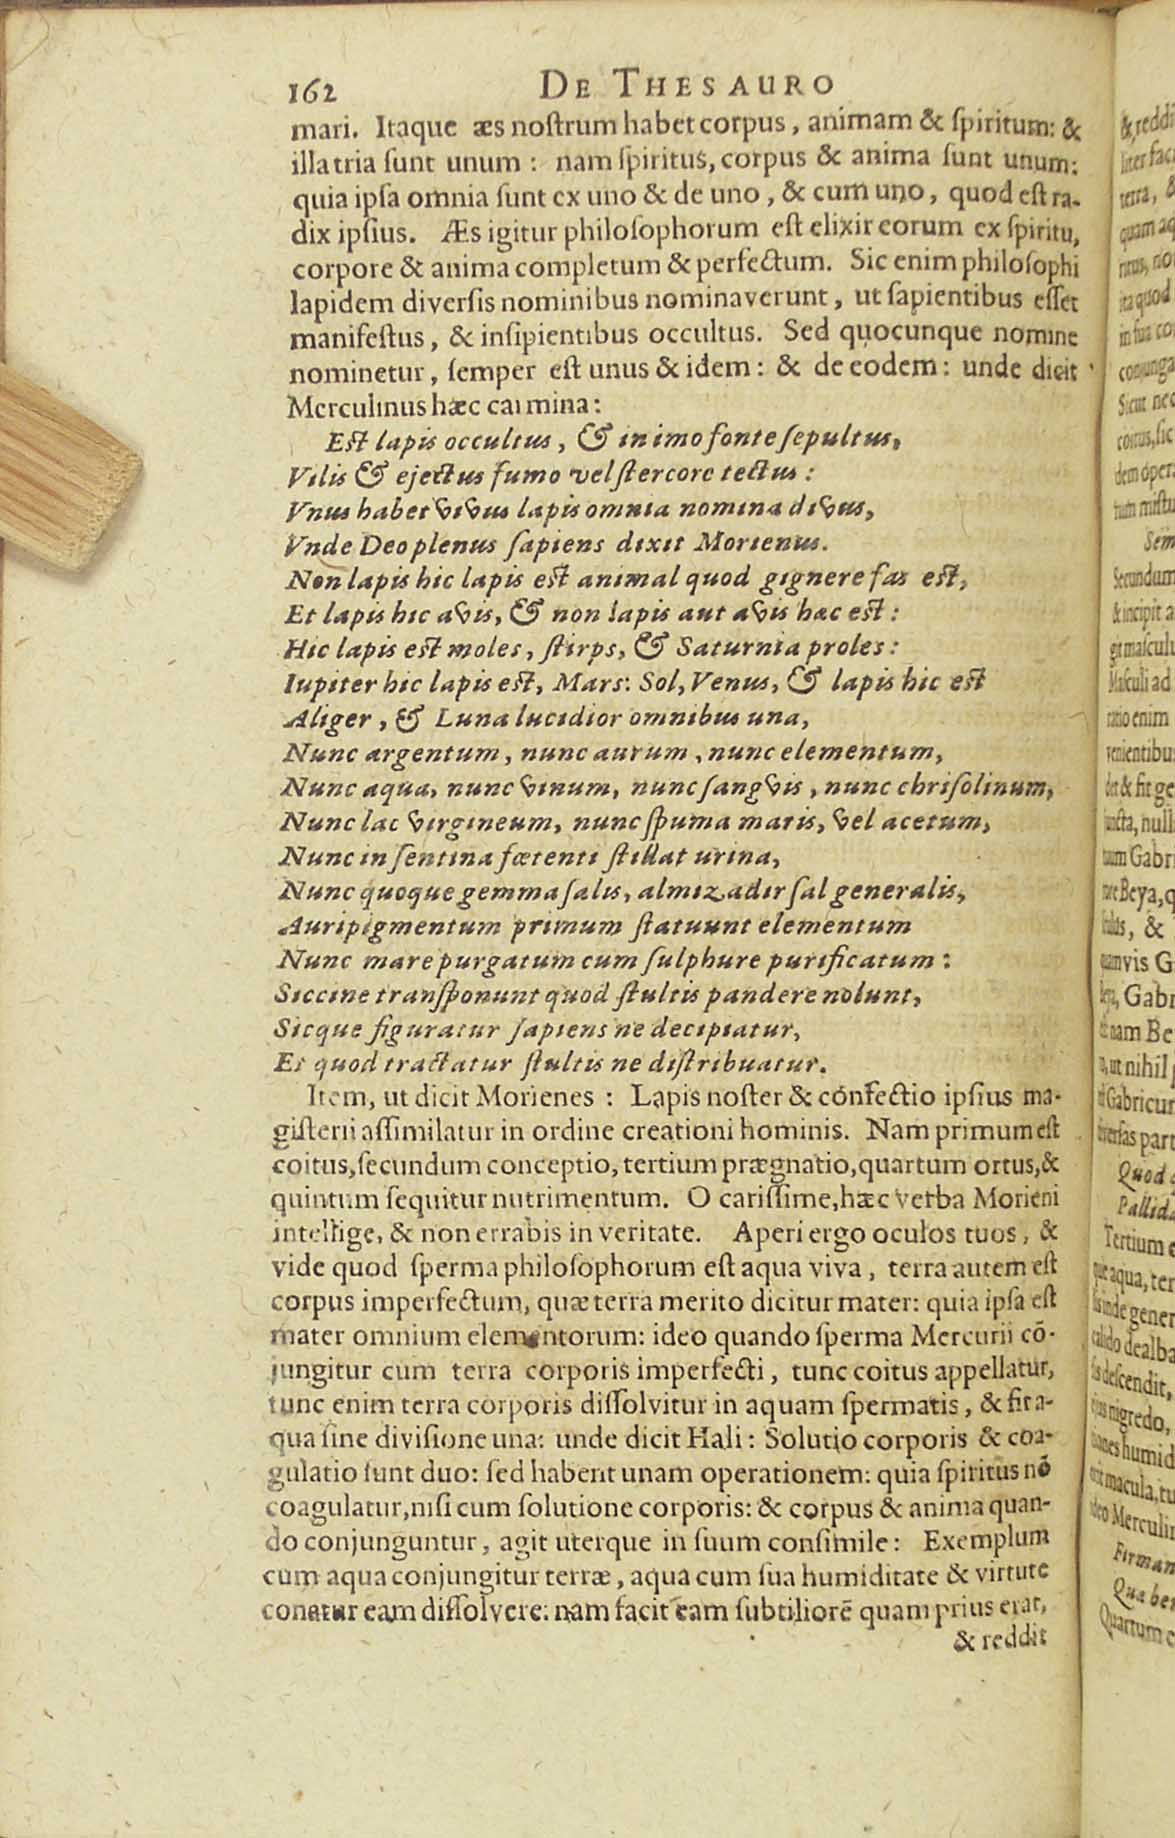 162 DE THESAURO
mari. Itaque æs noſtrum habet corpus, animam & ſpiritum: &
illa tria ſunt unum: nam ſpiritus, corpus & anima ſunt unum:
quia ipſa omnia ſunt ex uno & de uno, & cum uno, quod eſt ra-
dix ipſius. Æs igitur philoſophorum eſt elixir eorum ex ſpiritu,
corpore & anima completum & perfectum. Sic enim philoſophi
lapidem diverſis nominibus nominaverunt, ut ſapientibus eſſet
manifeſtus, & inſipientibus occultus. Sed quocunque nomine
nominetur, ſemper eſt unus & idem: & de eodem: unde dicit
Merculinus hæc carmina:
Eſt lapis occultus, & in imo fonte ſepultus,
Vilis & ejectus fumo vel ſtercore tectus:
Vnus habet vivus lapis omnia nomina divus,
Vnde Deo plenus ſapiens dixit Morienus.
Non lapis hic lapis eſt animal quod gignere fas eſt,
Et lapis hic avis, & non lapis aut avis hæc eſt:
Hic lapis eſt moles, ſtirps, & Saturnia proles:
Iupiter hic lapis eſt, Mars: Sol, Venus, & lapis hic eſt
Aliger, & Luna lucidior omnibus una,
Nunc argentum, nunc aurum, nunc elementum,
Nunc aqua, nunc vinum, nunc ſangvis, nunc chriſolinum,
Nunc lac virgineum, nunc ſpuma maris, vel acetum,
Nunc in ſentina fœtenti ſtillat urina,
Nunc quoque gemma ſalis, almizadir ſal generalis,
Auripigmentum primum ſtatuunt elementum
Nunc mare purgatum cum ſulphure purificatum:
Siccine tranſponunt quod ſtultis pandere nolunt,
Sicque figuratur ſapiens ne decipiatur,
Et quod tractatur ſtultis ne diſtribuatur.
Item, ut dicit Morienes: Lapis noſter & confectio ipſius ma-
giſterii aſſimilatur in ordine creationi hominis. Nam primum eſt
coitus, ſecundum conceptio, tertium prægnatio, quartum ortus, &
quintum ſequitur nutrimentum. O cariſſime, hæc verba Morieni
intellige, & non errabis in veritate. Aperi ergo oculos tuos, &
vide quod ſperma philoſophorum eſt aqua viva, terra autem eſt
corpus imperfectum, quæ terra merito dicitur mater: quia ipſa eſt
mater omnium elementorum: ideo quando ſperma Mercurii cõ-
jungitur cum terra corporis imperfecti, tunc coitus appellatur,
tunc enim terra corporis diſſolvitur in aquam ſpermatis, & fit a-
qua ſine diviſione una: unde dicit Hali: Solutio corporis & coa-
gulatio ſunt duo: ſed habent unam operationem: quia ſpiritus nõ
coagulatur, niſi cum ſolutione corporis: & corpus & anima quan-
do conjunguntur, agit uterque in ſuum conſimile: Exemplum
cum aqua conjungitur terræ, aqua cum ſua humiditate & virtute
conatur eam diſſolvere: nam facit eam ſubtiliorẽ quam prius erat,
& reddit